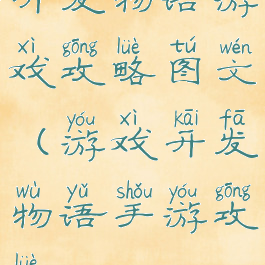 开发物语游
xì gōng lüè tú wén
戏攻略图文
yóu xì kāi fā
（游戏开发
wù yǔ shǒu yóu gōng
物语手游攻
lüè